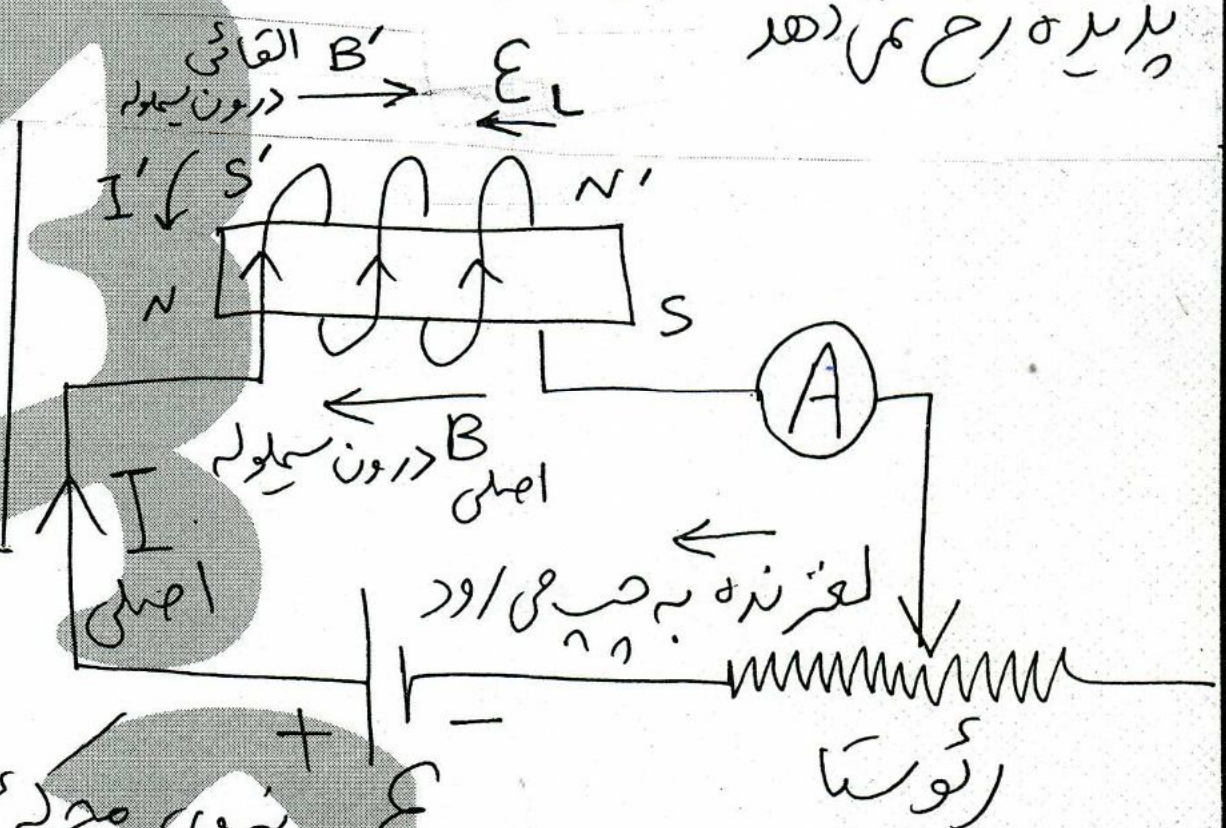 پدیده رخ می‌دهد
B′ القائی
درون سیملوله
ε L
I′
S′
N′
N
S
A
B درون سیملوله
اصلی
I
اصلی
لغزنده به چپ می رود
+
−
ε
رئوستا